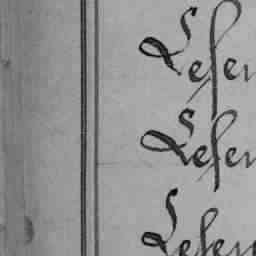 Lesen
Lesen
Lesen